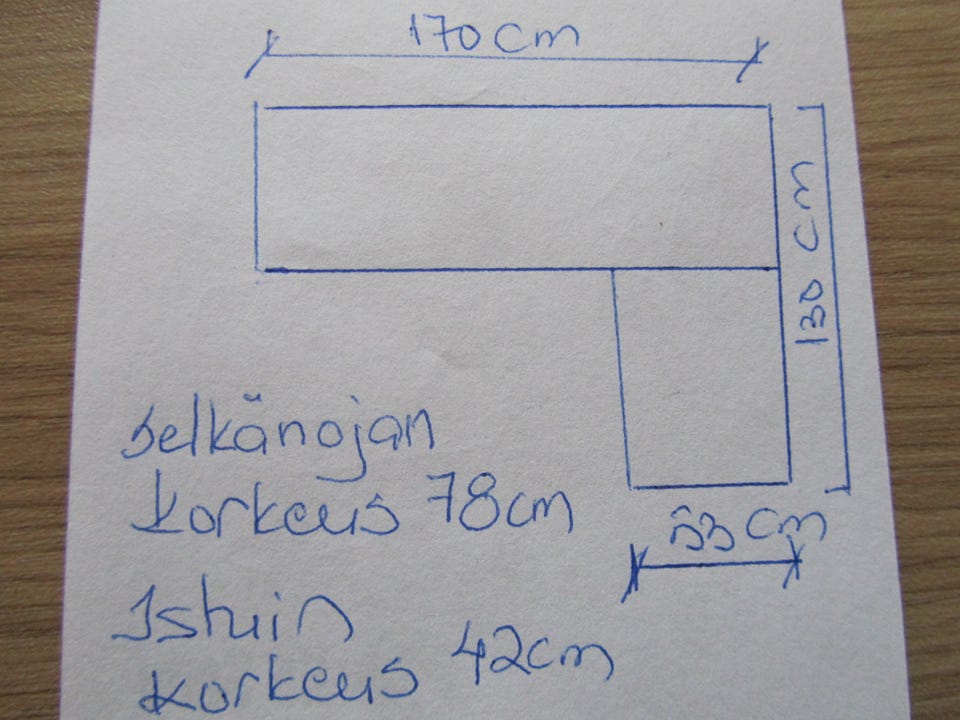 170 cm
130 cm
selkänojan
korkeus 78cm
53 cm
Istuin
korkeus 42cm